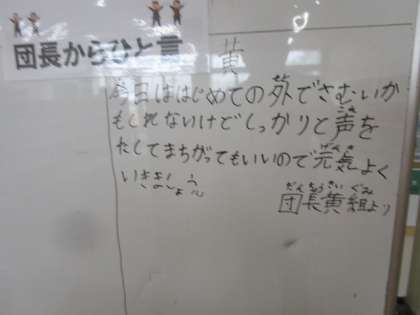 団長からひと言
黄
今日ははじめての外でさむいか
もしれないけどしっかりと声を
たしてまちがってもいいので元気よく
いきましょう
団長黄組より